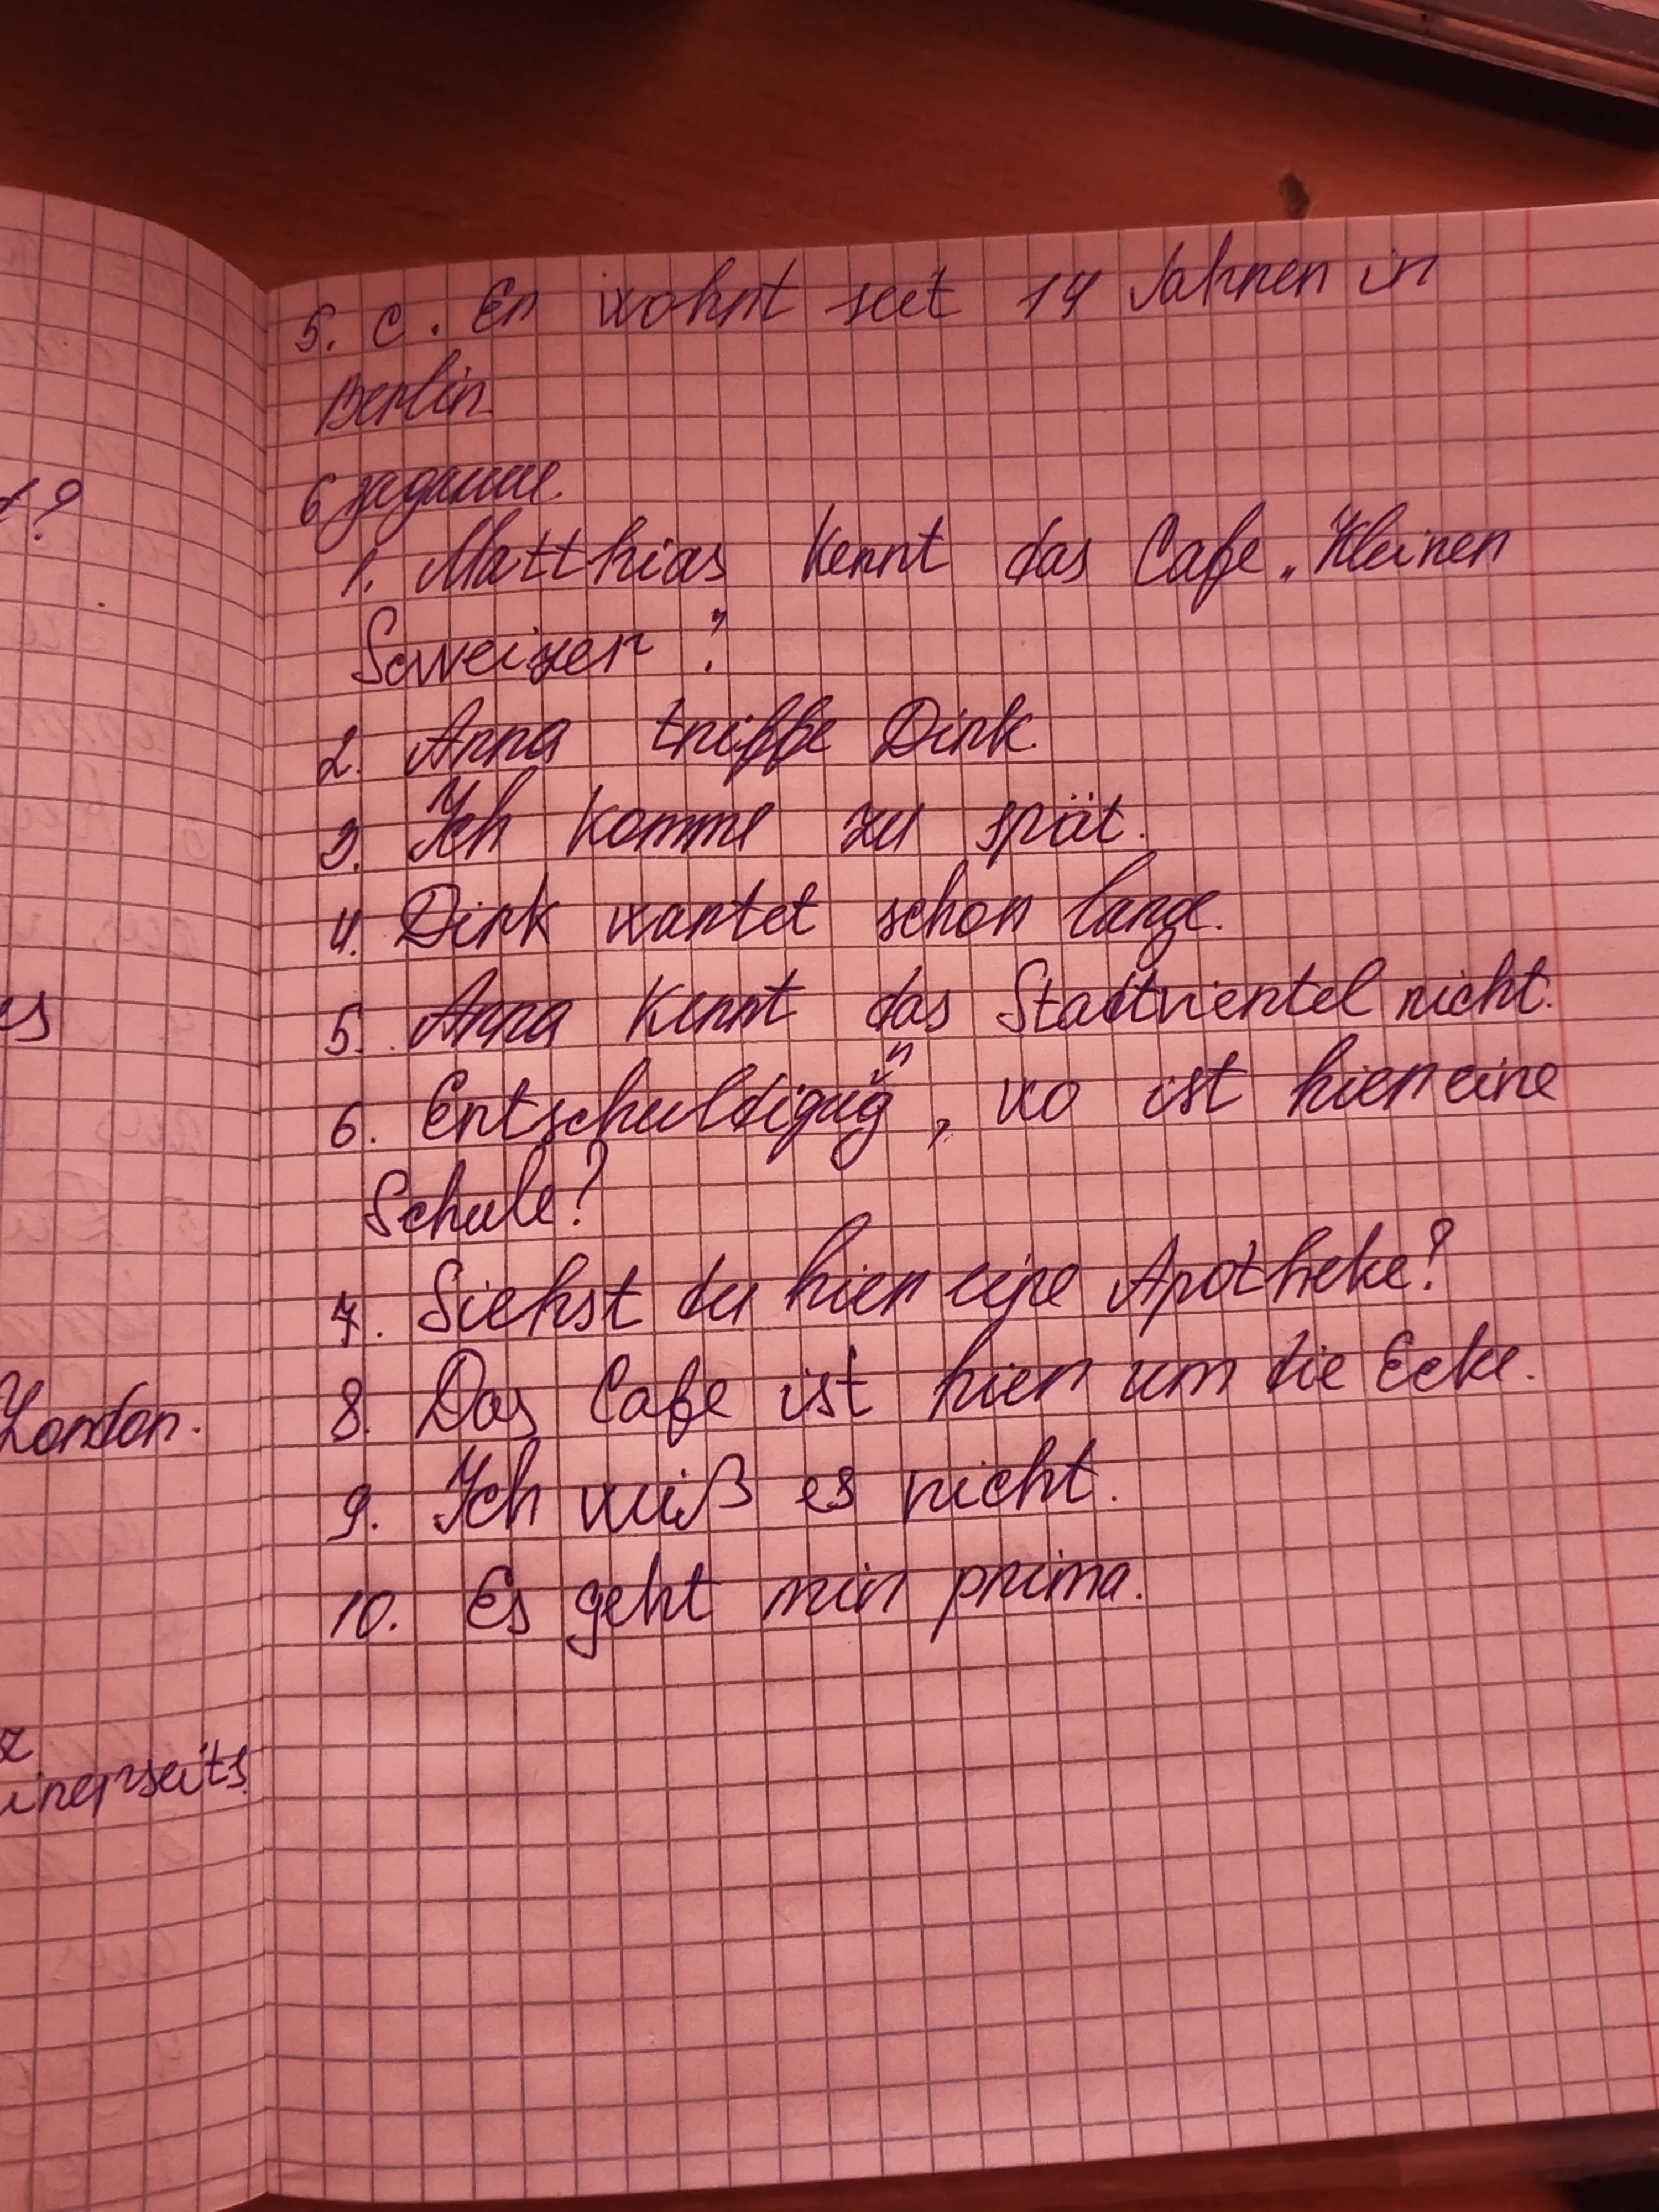 5. c. Er wohnt seit 14 Jahren in
Berlin.
6 задание.
1. Matthias kennt das Cafe „Kleinen
Scweizer“.
2. Anna triffe Dirk.
3. Ich komme zu spät.
4. Dirk wartet schon lange.
5. Anna kennt das Stadtviertel nicht.
n
6. Entschuldigug, wo ist hier eine
Schule?
7. Siehst du hier eine Apotheke?
8. Das Cafe ist hier um die Ecke.
9. Ich weiß es nicht.
10. Es geht mir prima.
t?
es
London.
z
inerseits.